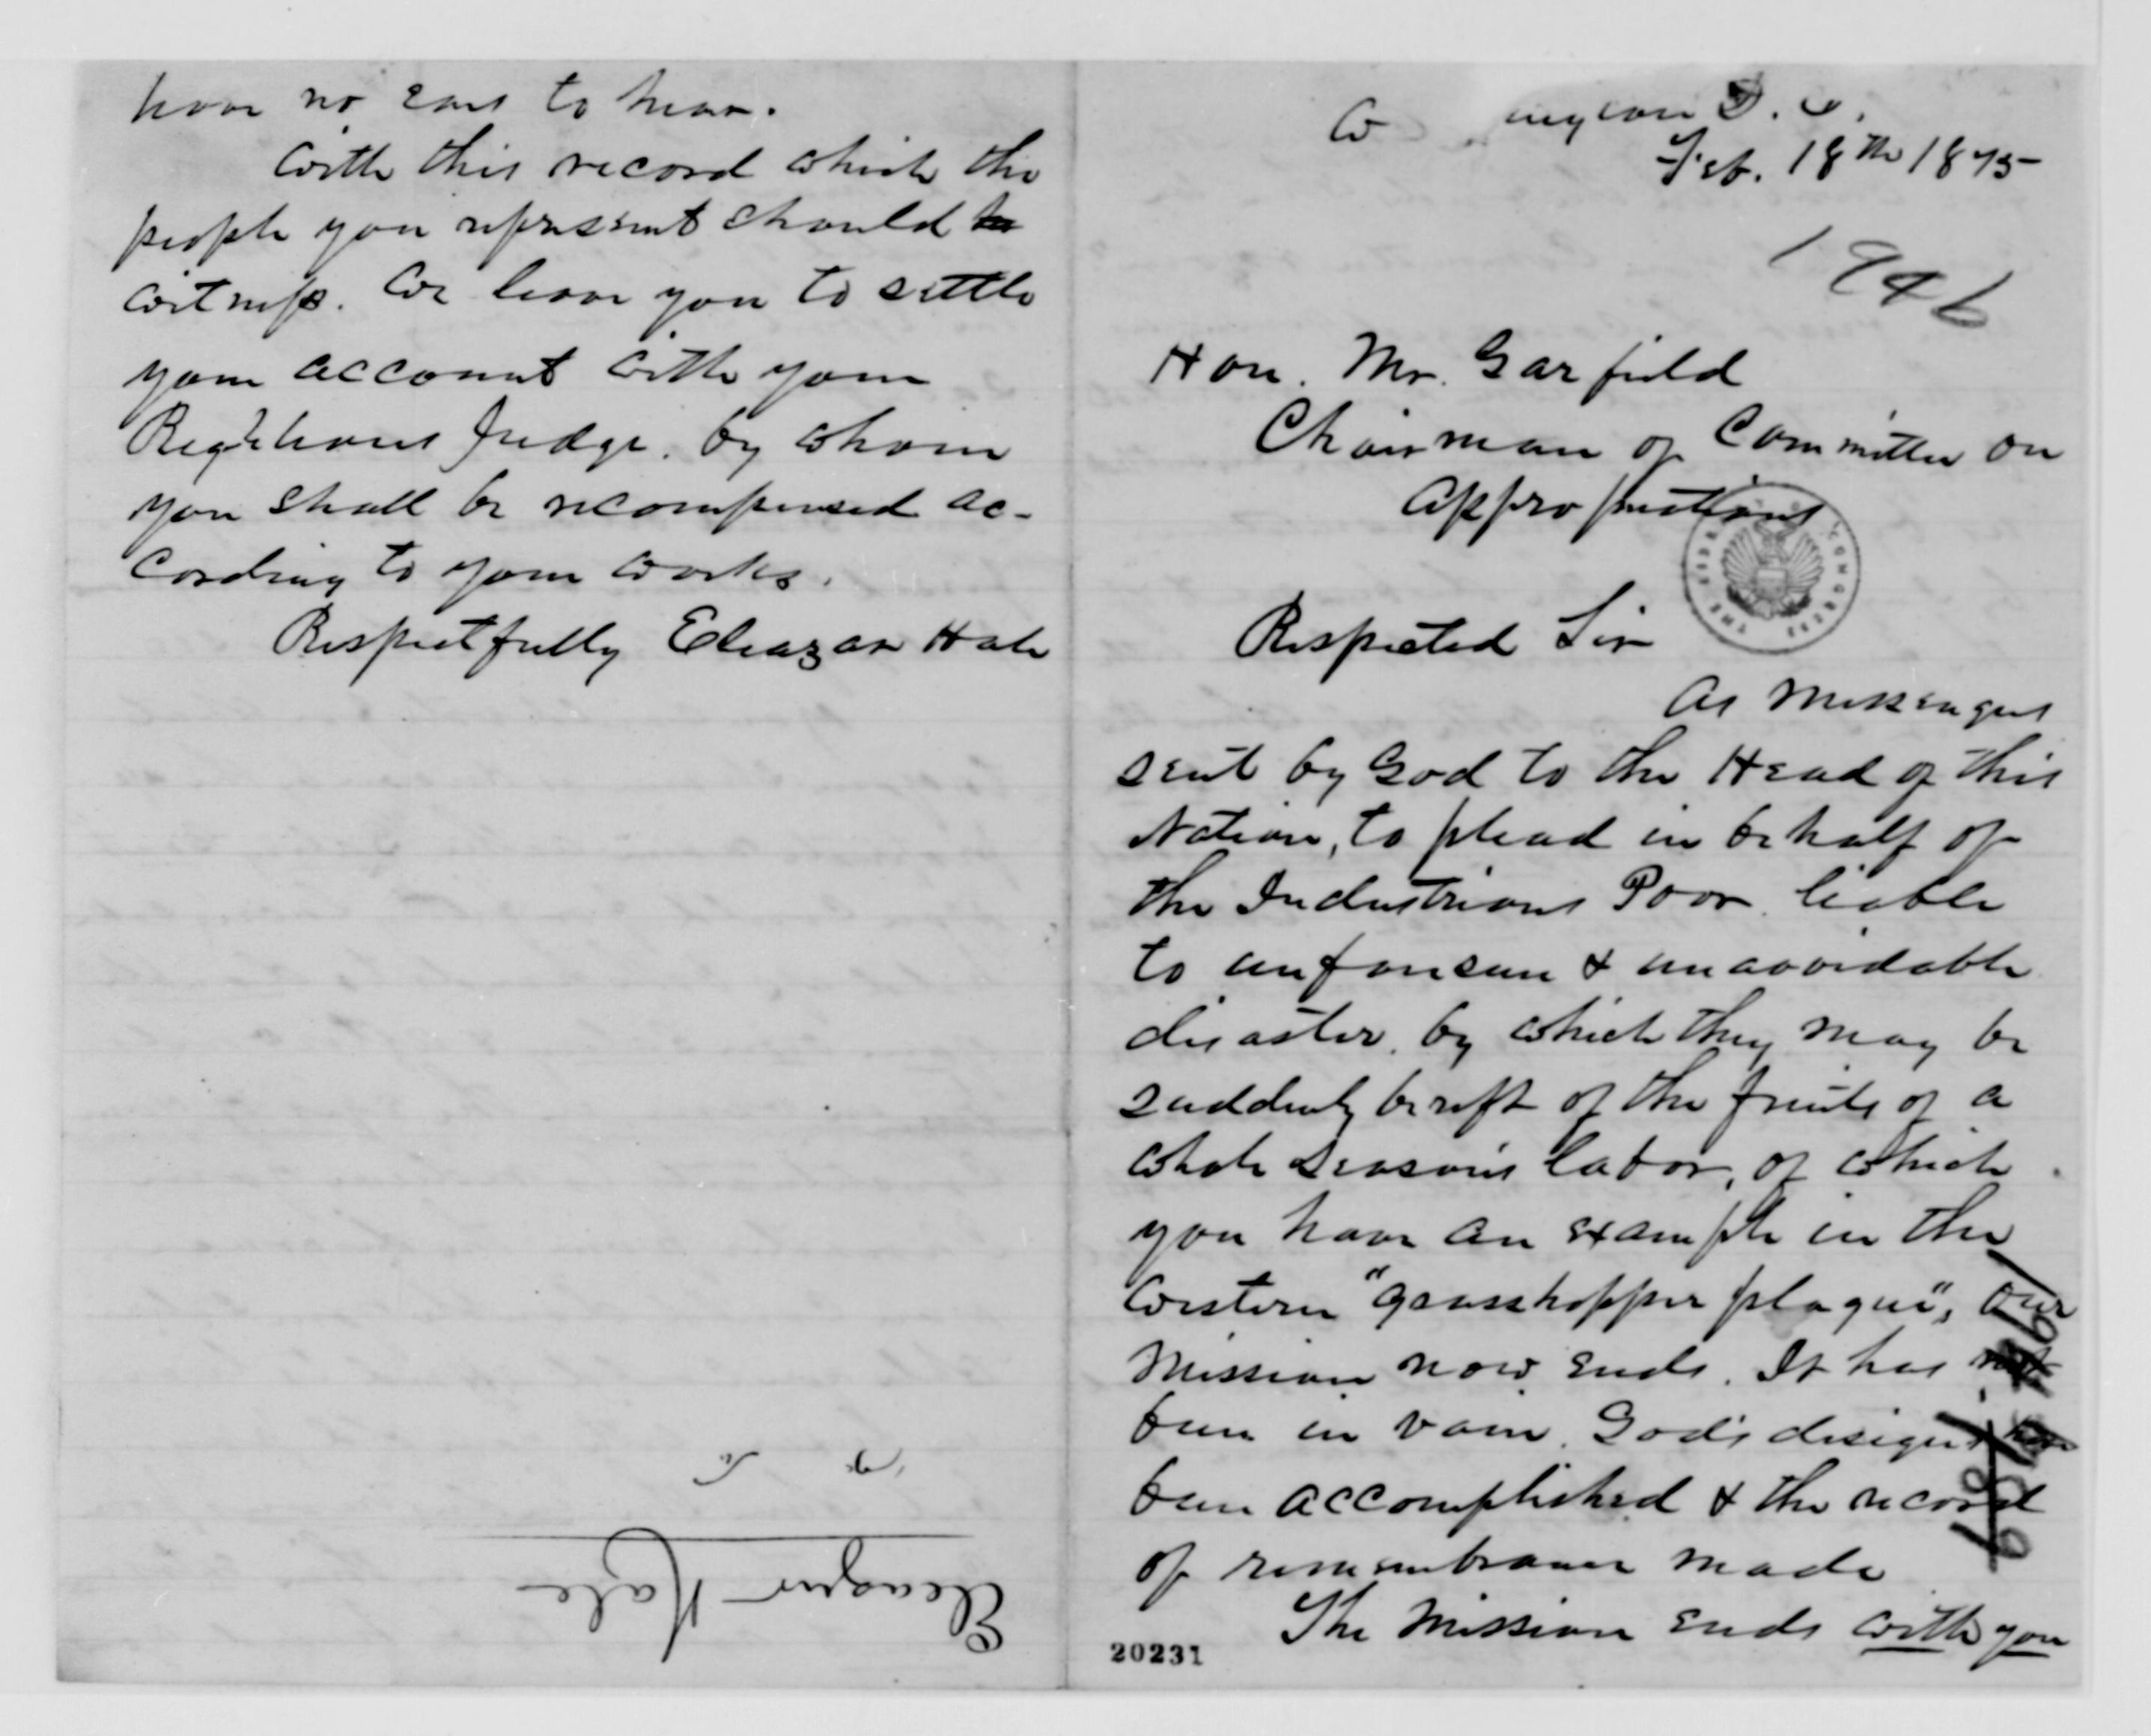 have no ears to hear.
With this record which the
people you represent should
witness. We leave you to settle
your account with your
Righteous Judge. by whom
you shall be recompensed ac-
cording to your works.
Respectfully Eleazar Hale
Eleazar Hale
W ington D. C.
Feb. 18th 1875
1946
Hon. Mr. Garfield
Chairman of Committee on
Appropriations
THE LIBRARY OF CONGRESS
Respected Sir
As Messengers
sent by God to the Head of this
Nation, to plead in behalf of
the Industrious Poor liable
to unforseen & unavoidable
disaster. by which they may be
suddenly bereft of the fruits of a
whole seasons labor, of which
you have an example in the
western "grasshopper plague", our
Mission now ends. It has not
been in vain. God's designs have
been accomplished & the record
of remembrance made
The Mission ends with you
20231